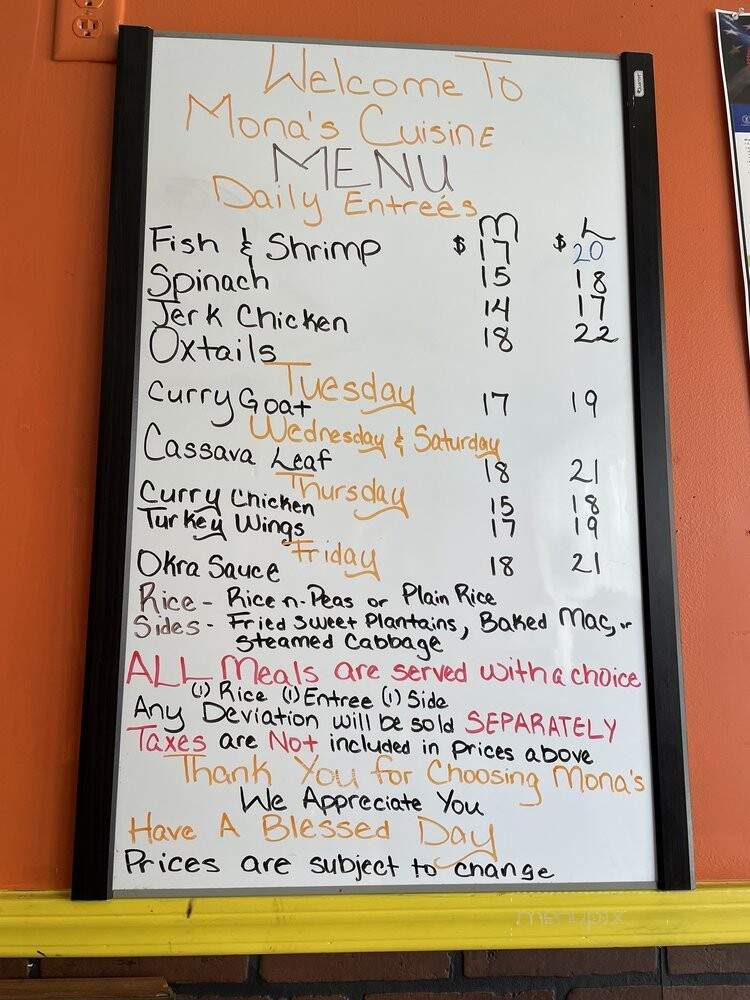 Welcome To
Mona's Cuisine
MENU
Daily Entreés
M L
Fish & Shrimp $ 17 $ 20
Spinach 15 18
Jerk Chicken 14 17
Oxtails 18 22
Tuesday
Curry Goat 17 19
Wednesday & Saturday
Cassava Leaf 18 21
Thursday
Curry Chicken 15 18
Turkey Wings 17 19
Friday
Okra Sauce 18 21
Rice - Rice n-Peas or Plain Rice
Sides - Fried Sweet Plantains, Baked Mac, or
Steamed Cabbage
ALL Meals are served with a choice
(1) Rice (1) Entree (1) Side
Any Deviation will be sold SEPARATELY
Taxes are Not included in prices above
Thank You for Choosing Mona's
We Appreciate You
Have A Blessed Day
Prices are subject to change
menupix